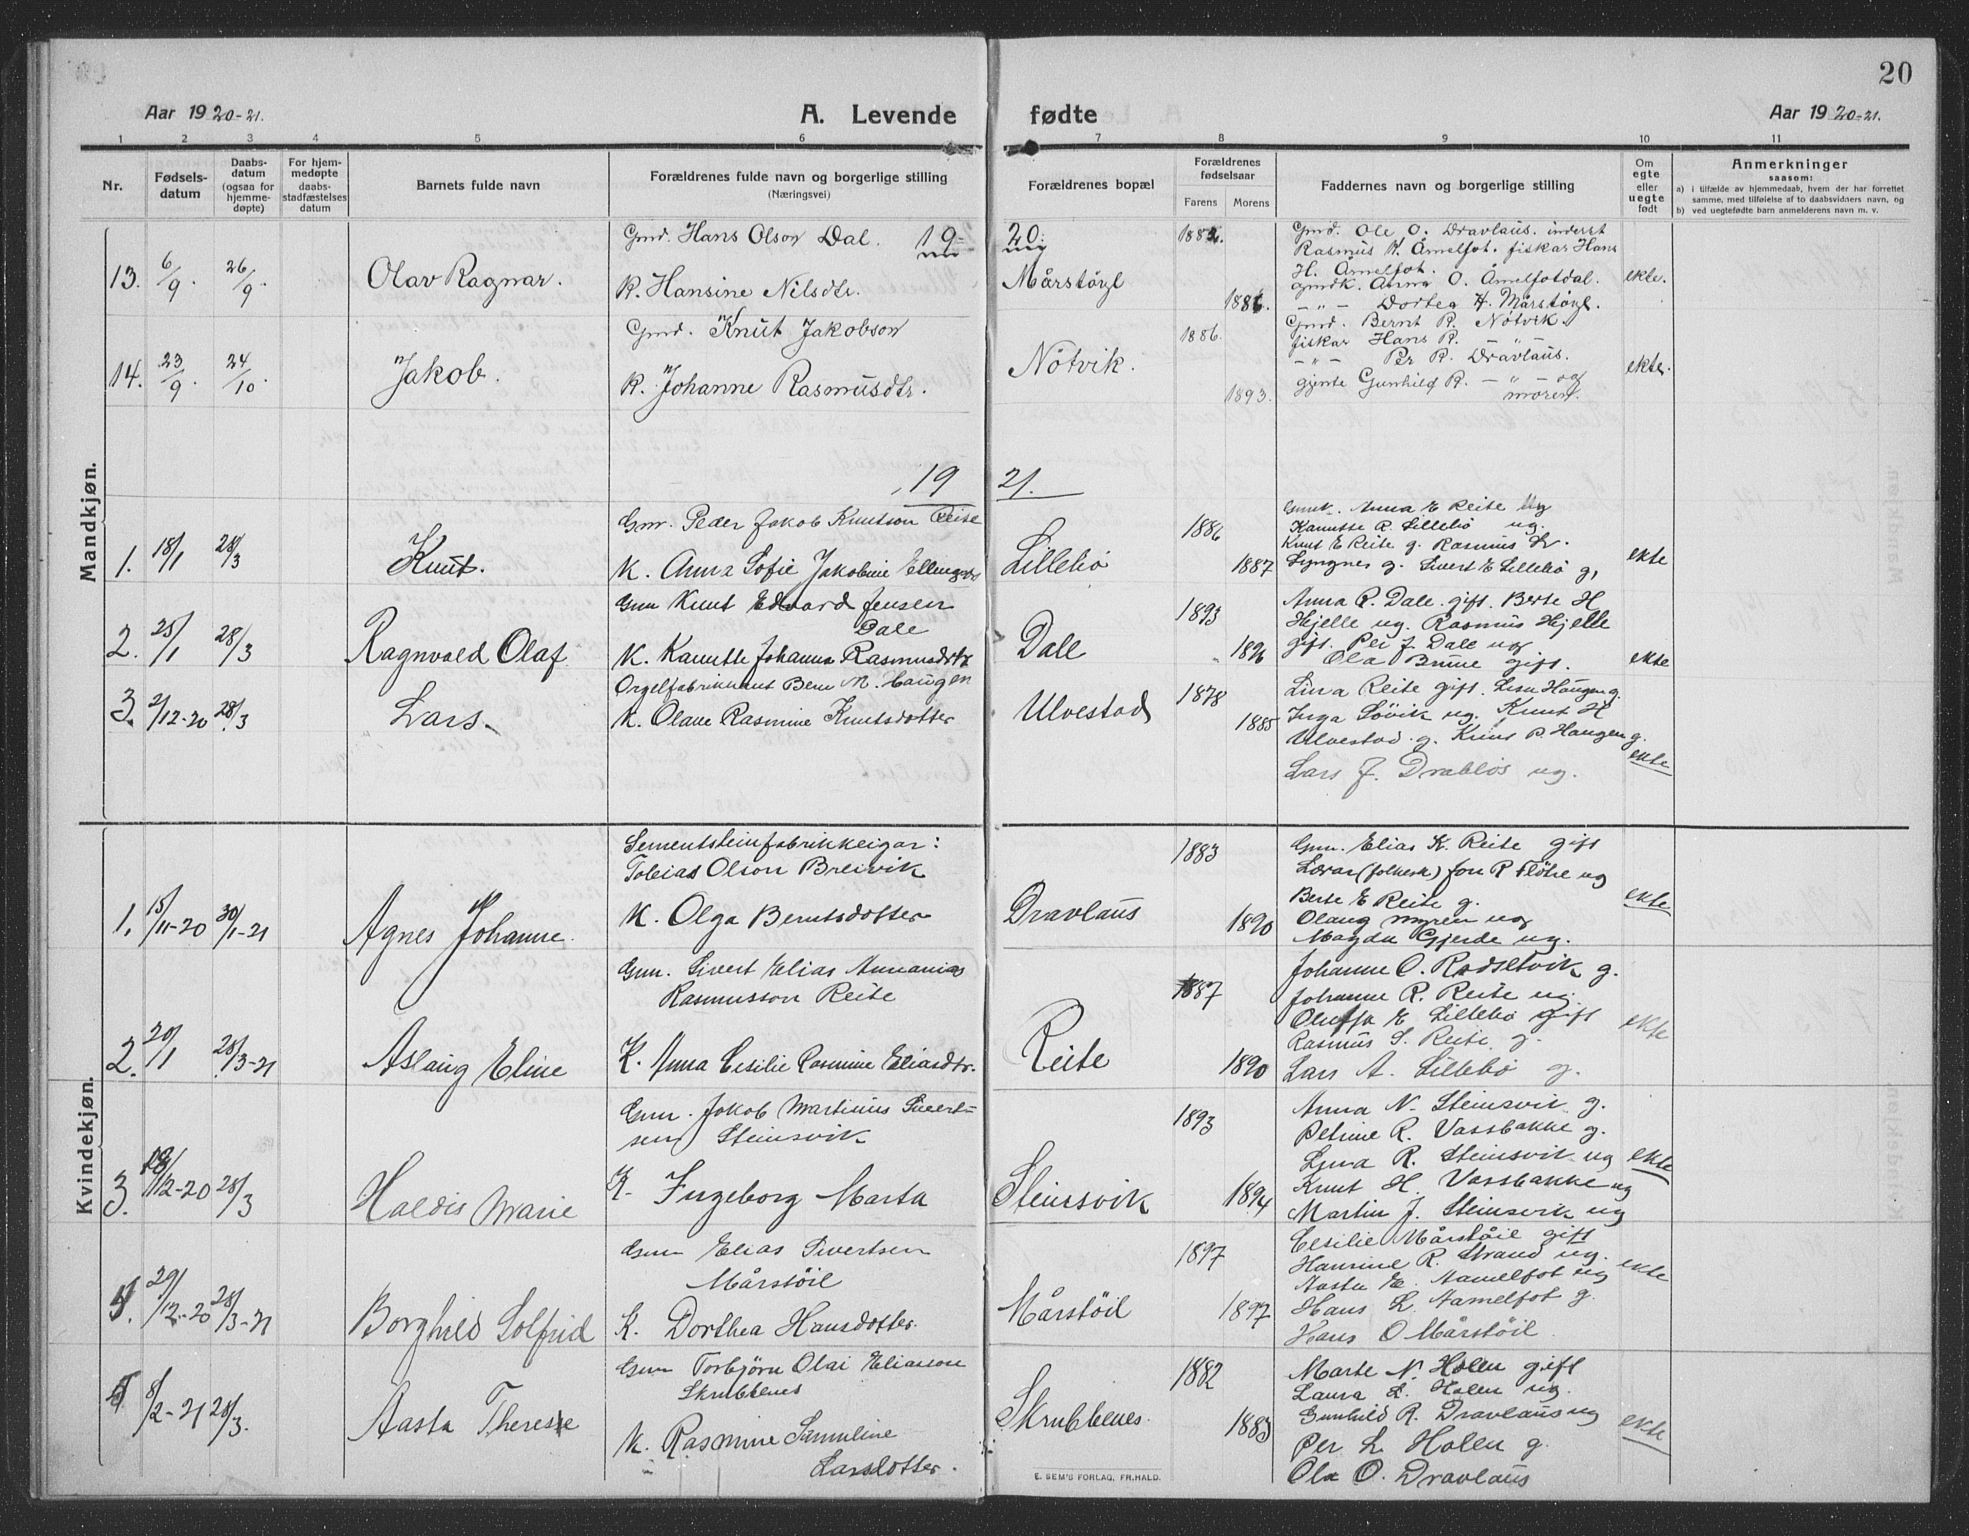 20
Aar 1920-21.
A. Levende fødte
Aar 1920-21.
1 2 3 4 5 6 7 8 9 10 11
Nr.
Fødsels-
datum
Daabs-
datum
(ogsaa for
hjemme-
døpte)
For hjem-
medøpte
daabs-
stadfæstelses
datum
Barnets fulde navn
Forældrenes fulde navn og borgerlige stilling
(Næringsvei)
Forældrenes bopæl
Forældrenes
fødselsaar
Farens Morens
Faddernes navn og borgerlige stilling
Om
egte
eller
uegte
født
Anmerkninger
saasom:
a) i tilfælde av hjemmedaab, hvem der har forrettet
samme, med tilføielse af to daabsvidners navn, og
b) ved uegtefødte barn anmelderens navn m. v.
Mandkjøn.
19 20.
13. 6/9. 26/9. Olav Ragnar.
Gmd. Hans Olson Dal.
K. Hansine Nilsdtr.
Mårstöyl
1882.
1886.
Gmd. Ole O. Dravlaus. inderst
Rasmus H. Åmelfot. fiskar Hans
H. Åmelfot.
gmdk. Anna O. Åmelfotdal.
- " - Dortea H. Mårstöyl.
ekte.
14. 23/9. 24/10. Jakob.
Gmd. Knut Jakobson
K. Johanne Rasmusdtr.
Nötvik.
1886.
1893.
Gmd. Bernt R. Nötvik.
fiskar Hans R. - " -
- " - Per R. Dravlaus.
gjente Gunhild R. - " - og
moren.
ekte.
19 21.
1. 18/1 28/3 Knut.
Gmr. Peder Jakob Knutson Reite
K. Anna Sofie Jakobine Ellingsdtr
Lillebö
1886
1887
Gmk. Anna E Reite ug
Kanutte R. Lillebö ug.
Knut E Reite g. Rasmus L.
Lyngnes g. Sivert E Lillebö g,
ekte
2. 25/1 28/3 Ragnvald Olaf
Gmr Knut Edvard Jensen
Dale
K. Kanutte Johanna Rasmusdtr
Dale
1893
1896
Anna R. Dale gift. Berte H
Hjelle ug. Rasmus Hjelle
gift. Per J. Dale ug
Ola Brune gift.
ekte
3. 2/12-20 28/3 Lars
Orgelfabrikant Bern M. Haugen
K. Olave Rasmine Knutsdotter
Ulvestad
1878
1885
Lina Reite gift. Lisa Haugen g.
Inga Lövik ug. Knut H
Ulvestad g. Knut P. Haugen g.
Lars J. Drablös ug.
ekte
Kvindekjøn.
1. 15/11-20 30/1-21 Agnes Johanne.
Sementsteinfabrikkeigar:
Tobias Olson Breivik
K. Olga Berntsdotter
Dravlaus
1883
1890
Gmr. Elias K. Reite gift
Lærar (folkesk) Jon R Flöhe ug
Berte E Reite g.
Olaug Myren ug
Magda Gjerde ug.
ekte
2. 20/1 28/3-21 Aslaug Eline
Gmr. Sivert Elias Annanias
Rasmusson Reite
K. Anna Cesilie Rasmine Eliasdtr.
Reite
1887
1890
Johanne O. Rødsetvik g.
Johanne R. Reite ug.
Oluffa E Lillebö gift
Rasmus S. Reite g.
Lars A. Lillebö g.
ekte
3. 18/12-20 28/3 Haldis Marie
Gmr. Jakob Martinus Sivert-
sen Steinsvik
K. Ingeborg Marta
Steinsvik
1893
1894
Anna N. Steinsvik g.
Petrine R. Vassbakke g.
Lina R. Steinsvik ug
Knut H. Vassbakke ug
Martin J. Steinsvik ug
ekte
4. 29/12-20 28/3-21 Borghild Solfrid
Gmr Elias Sivertsen
Mårstöil
K. Dorthea Hansdotter
Mårstöil
1897
1897
Cesilie Mårstöil gift
Hansine R. Strand ug.
Aasta E. Aamelfot ug
Hans L. Aamelfot g.
Hans O Mårstöil
ekte
5 8/2-21 28/3. Aasta Therese
Gmr Torbjörn Olai Eliasson
Skrubbenes
K. Rasmine Samuline
Larsdotter.
Skrubbenes.
1882
1883
Marte N. Holen gift
Laura L. Holen ug.
Gunhild R. Dravlaus ug
Per L Holen g.
Ola O. Dravlaus
ekte
E. SEM'S FORLAG, FR.HALD.